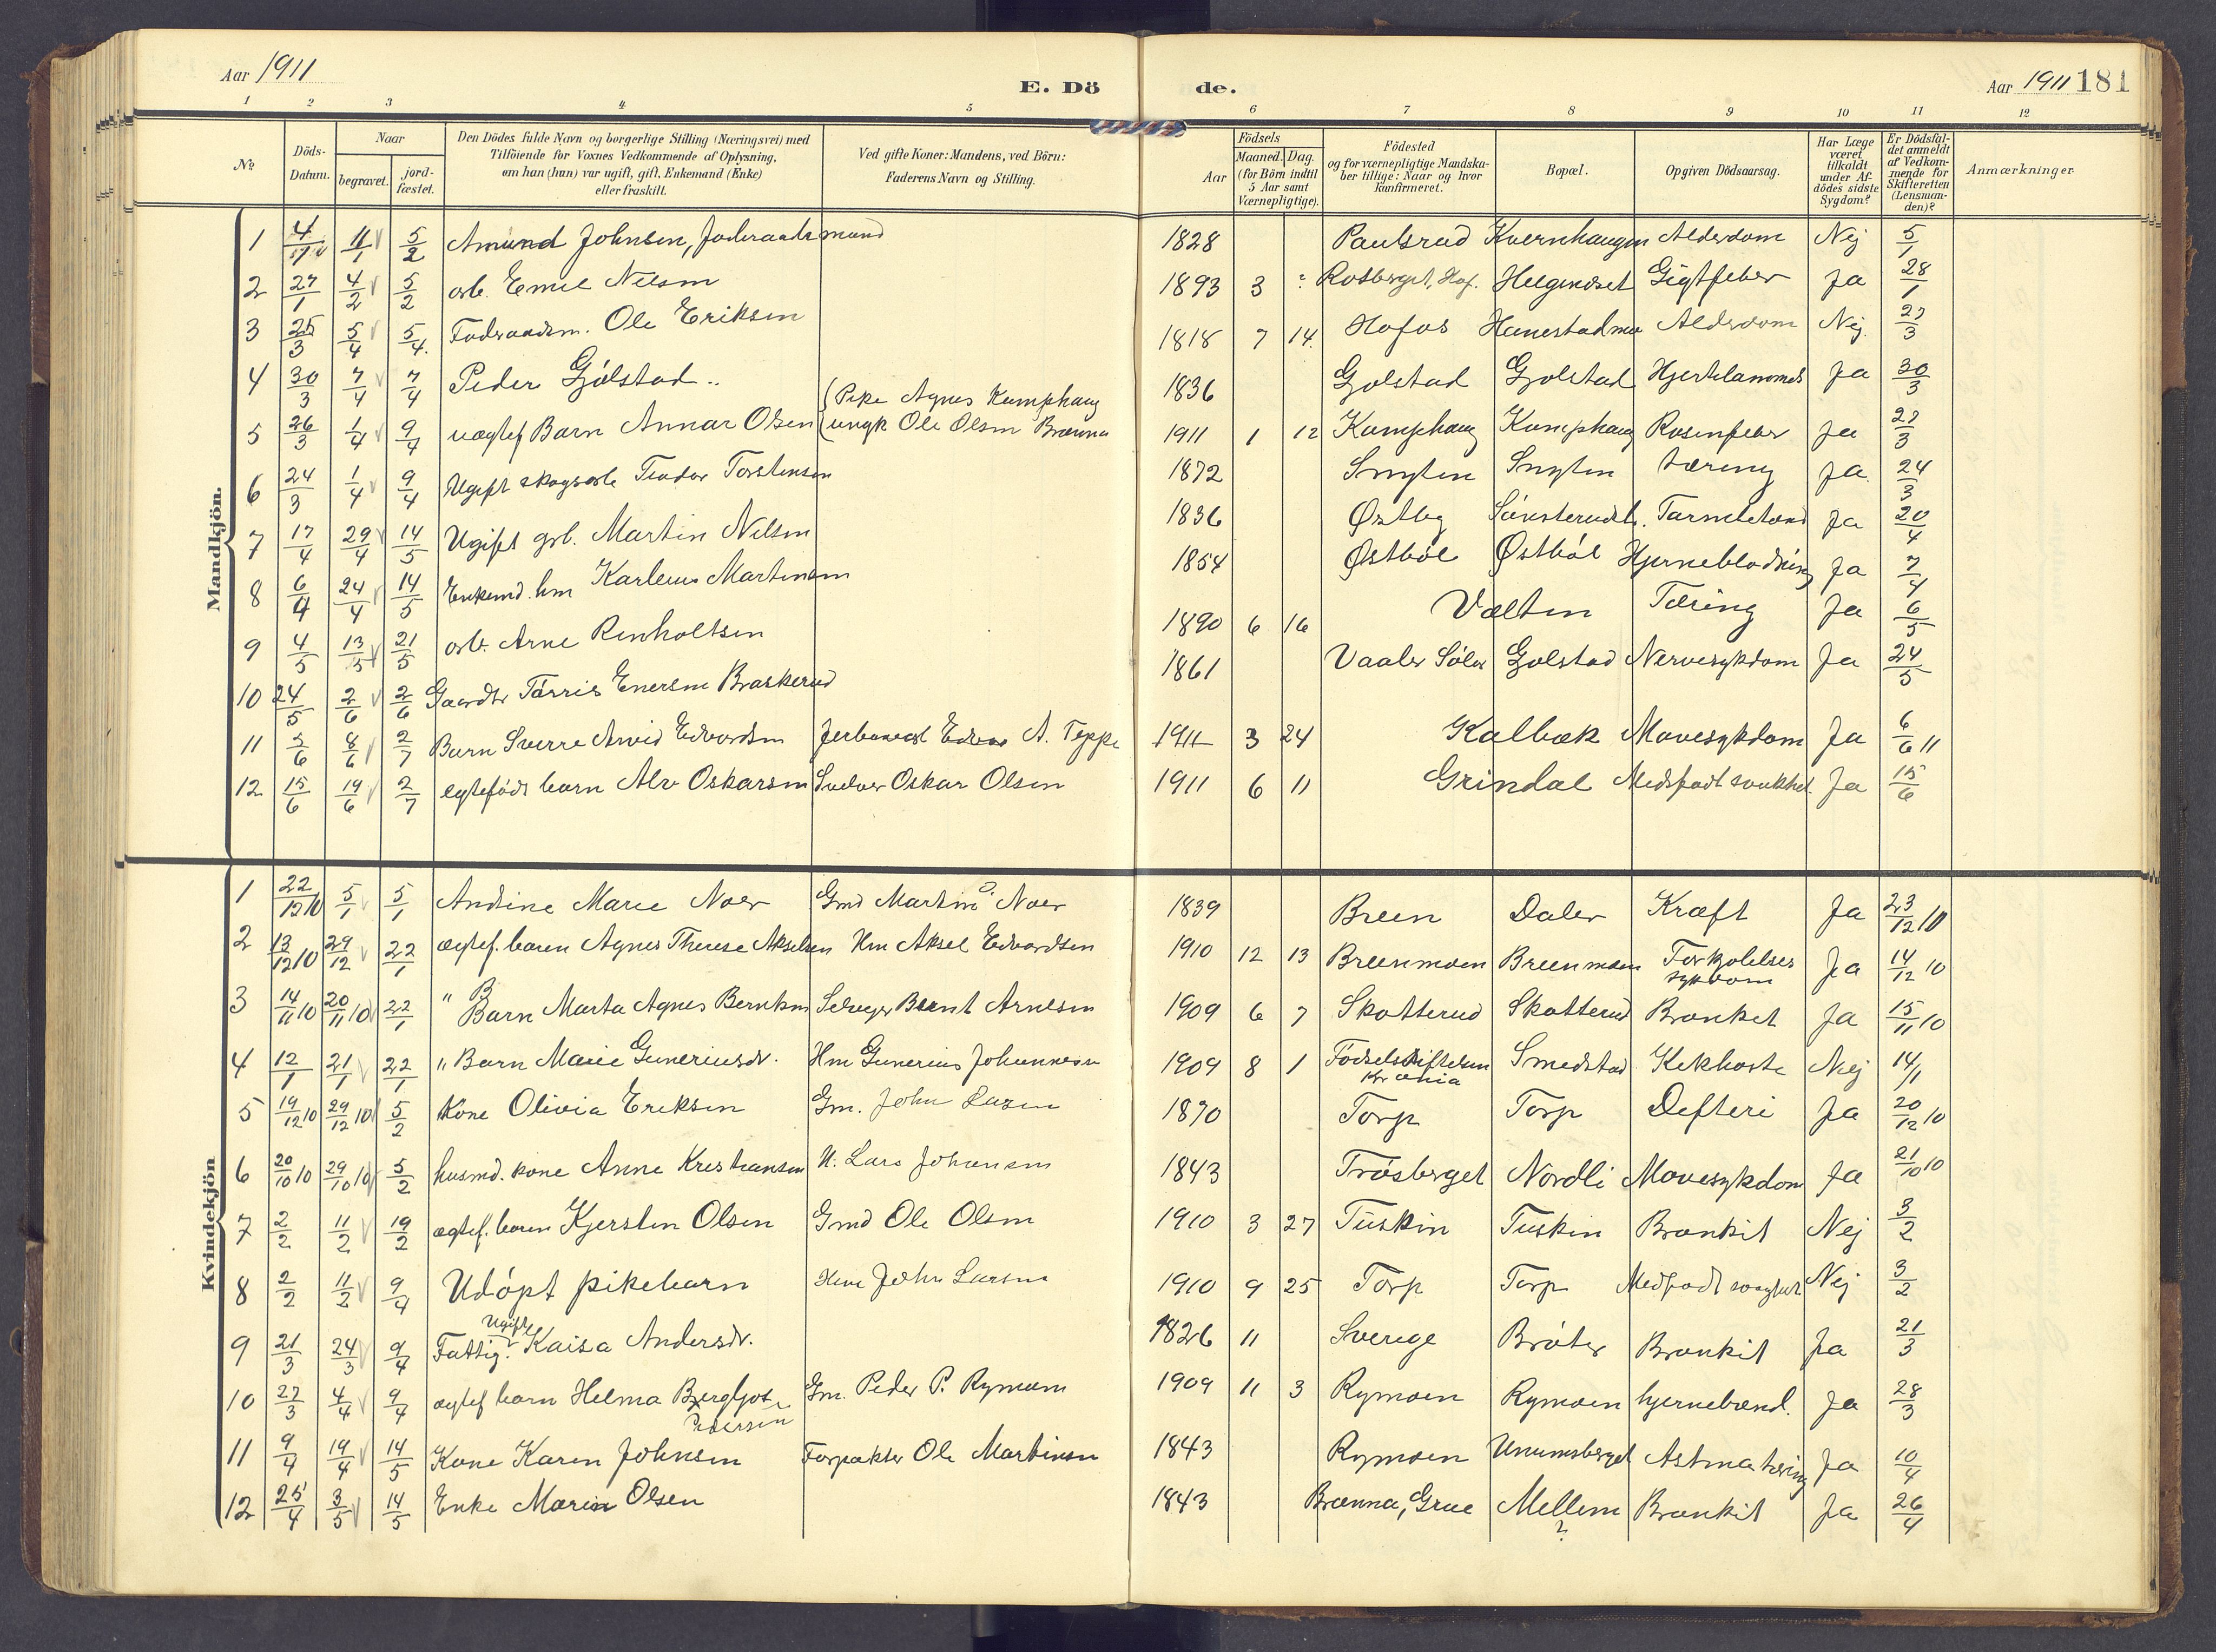 Aar 1911
E. Dö
de.
Aar 1911 181
1 2 3 4 5 6 7 8 9 10 11 12
№ Döds-Datum. Naar begravet. jord-fæstet. Den Dödes fulde Navn og borgerlige Stilling (Næringsvei) med Tilföiende for Voxnes Vedkommende af Oplysning, om han (hun) var ugift, gift, Enkemand (Enke) eller fraskilt. Ved gifte Koner: Mandens, ved Börn: Faderens Navn og Stilling. Födsels Aar Maaned. Dag. (for Börn indtil 5 Aar samt Værnepligtige). Födested og for værnepligtige Mandskaber tillige: Naar og hvor Konfirmeret. Bopæl. Opgiven Dödsaarsag. Har Læge været tilkaldt under Afdödes sidste Sygdom? Er Dödsfaldet anmeldt af Vedkommende for Skifteretten (Lensmanden)? Anmærkninger.
Mandkjön.
1 5/2 Amund Johnsen, 1828 Paulsrud Kvernhaugen Alderdom Nej 5/1
2 27/1 4/2 5/2 arb. Emil Nilsen 1893 3 ? Rotberget, Hof. Helgeneset Gigtfeber Ja 28/1
3 25/3 5/4 5/4. Föderaadsm. Ole Eriksen 1818 7 14 Hofos Hanestadmo Alderdom Nej. 27/3
4 30/3 7/4 7/4 Peder Gjölstad.. 1836 Gjolstad Gjolstad Hjertelammels Ja 30/3
5 26/3 1/4 9/4 uægtef Barn Annar Olsen {Pike Agnes Kumphaug {ungk Ole Olsen Brænna 1911 1 12 Kumphaug Kumphaug Rosenfeber Ja 27/3
6 24/3 1/4 9/4 Ugift skogsarb Teodor Torstensen 1872 Smyten Smyten tæring Ja. 24/3
7 17/4 29/4 14/5 Ugift grb. Martin Nilsen 1836 Østby Ja 20/4
8 6/4 24/4 14/5 Enkemd. hm Karlenus Martinsen 1854 Østböl Østböl Hjerneblödning Ja 7/4
9 4/5 13/5 21/5 arb. Arne Renholtsen 1890 6 16 Vælten Tæring Ja 6/5
10 24/5 2/6 2/6 Gaardbr Törris Enersen Braskerud 1861 Vaaler Soler Gjolstad Nervesykdom Ja 24/5
11 5/6 8/6 2/7 Barn Sverre Arvid Edvardsen Edvard A. Teppe 1911 3 24 Kalbæk Mavesykdom Ja 6/6 11
12 15/6 19/6 2/7 egtefödt barn Alv Oskarsen Oskar Olsen 1911 6 11 Grindal Medfödt svakhet. Ja 15/6
Kvindekjön
1 22/12 10 5/1 5/1 Andine Marie Noer Gmd Martin Noer 1839 Breen Daler Kræft Ja 23/12 10
2 13/12 10 29/12 22/1 ægtef. barn Agnes Therese Akselsen Hm Aksel Edvardsen 1910 12 13 Breenmoen Breenmoen Forkjolelses sykdom Ja 14/12 10
3 14/11 10 20/11 10 22/1 " Barn Marta Agnes Berntsen Selveger Bernt Arnesen 1909 6 7 Skatterud Skatterud Bronket Ja 15/11 10
4 12/1 21/1 22/1 " Barn Marie Guneriusdr. Hm Gunerius Johannesen 1909 8 1 Födselsstiftelsen Kr.ania Smedstad Kekhoste Nej 14/1
5 19/12 10 29/12 10 5/2 Kone Olivia Eriksen Gm. John Larsen 1870 Torp Torp Defteri Ja 20/12 10
6 20/10 10 29/10 10 5/2 husmd. kone Anne Kristiansen H. Lars Johansen 1843 Trösberget Nordli Mavesykdom Ja 21/10 10
7 2/2 11/2 19/2 ægtef. barn Kjersten Olsen Gmd Ole Olsen 1910 3 27 Tuskin Tuskin Bronkit Nej 3/2
8 2/2 11/2 9/4 Udöpt pikebarn Hm John Larsen 1910 9 25 Torp Torp Medfödt svaghet Nej 3/2
9 21/3 24/3 9/4 Fattig. Ugifte Kaisa Andersdr. 1826 11 Sverige Bröter Bronkit Ja 21/3
10 27/3 4/4 9/4 ægtef barn Helma Bergljot Pedersen Gm. Peder P. Rymoen 1909 11 3 Rymoen Rymoen hjernebænd. Ja 28/3
11 9/4 19/4 14/5 Kone Karen Johnsen Forpakter Ole Martinsen 1843 Rymoen Unumsberget Astma tæring Ja 10/4
12 25/4 3/5 14/5 Enke Maria Olsen 1843 Brænna, Grue Mellem ? Bronkit Ja 26/4